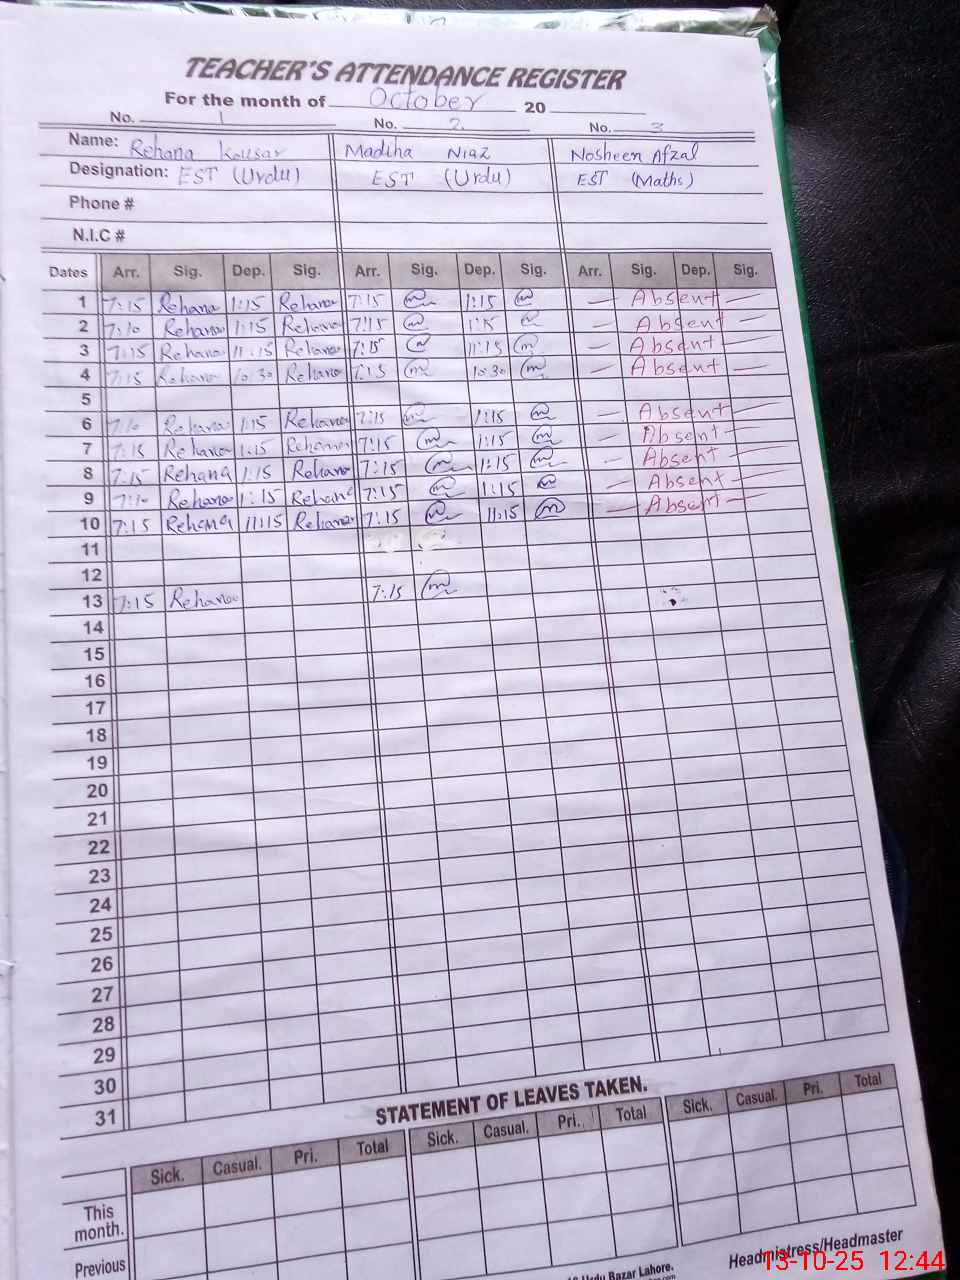 TEACHER'S ATTENDANCE REGISTER
For the month of October 20
No. 1 No. 2 No. 3
Name: Rehana Kousar Madiha Niaz Nosheen Afzal
Designation: EST (Urdu) EST (Urdu) EST (Maths)
Phone #
N.I.C #
Dates Arr. Sig. Dep. Sig. Arr. Sig. Dep. Sig. Arr. Sig. Dep. Sig.
1 7:15 Rehana 1:15 Rehana 7:15 1:15 — Absent —
2 7:10 Rehana 1:15 Rehana 7:15 1:15 — Absent —
3 7:15 Rehana 11:15 Rehana 7:15 11:15 — Absent —
4 7:15 Rehana 10:30 Rehana 7:15 10:30 — Absent —
5
6 7:10 Rehana 1:15 Rehana 7:15 1:15 — Absent —
7 7:15 Rehana 1:15 Rehana 7:15 1:15 — Absent —
8 7:15 Rehana 1:15 Rehana 7:15 1:15 — Absent —
9 7:10 Rehana 1:15 Rehana 7:15 1:15 — Absent —
10 7:15 Rehana 11:15 Rehana 7:15 11:15 — Absent —
11
12
13 7:15 Rehana 7:15
14
15
16
17
18
19
20
21
22
23
24
25
26
27
28
29
30
31
STATEMENT OF LEAVES TAKEN.
Sick. Casual. Pri. Total Sick. Casual. Pri. Total Sick. Casual. Pri. Total
This
month.
Previous
Urdu Bazar Lahore.
Headmistress/Headmaster
13-10-25 12:44